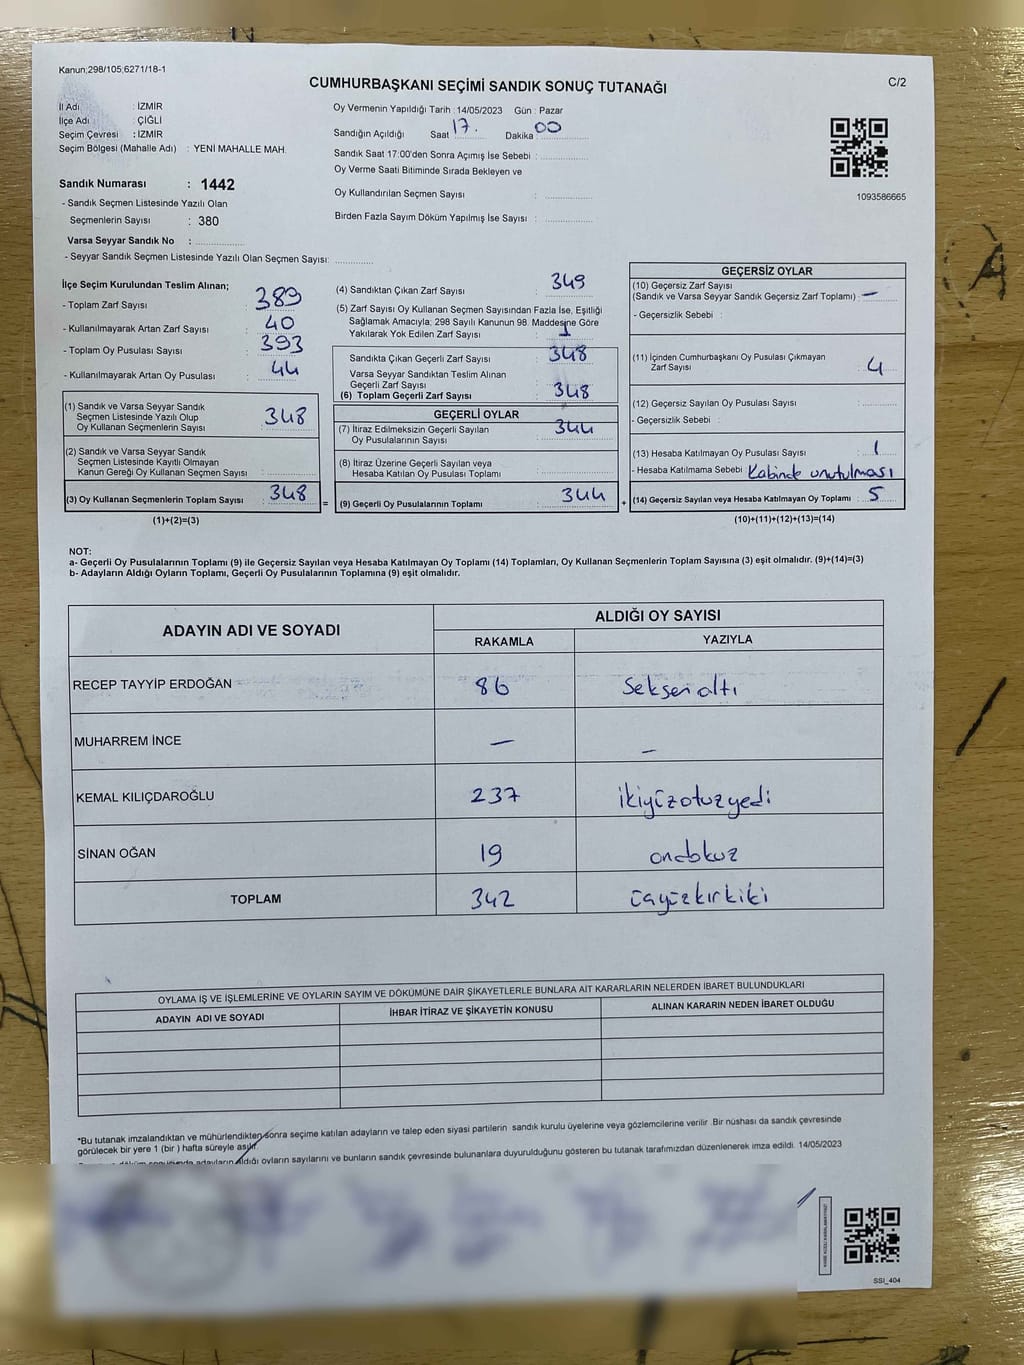 Kanun;298/105;6271/18-1
CUMHURBAŞKANI SEÇİMİ SANDIK SONUÇ TUTANAĞI
C/2
İl Adı : İZMİR
İlçe Adı : ÇİĞLİ
Seçim Çevresi : İZMİR
Seçim Bölgesi (Mahalle Adı) : YENİ MAHALLE MAH.
Sandık Numarası : 1442
- Sandık Seçmen Listesinde Yazılı Olan
Seçmenlerin Sayısı : 380
Varsa Seyyar Sandık No :
- Seyyar Sandık Seçmen Listesinde Yazılı Olan Seçmen Sayısı:
Oy Vermenin Yapıldığı Tarih : 14/05/2023 Gün : Pazar
Sandığın Açıldığı Saat 17. Dakika 00
Sandık Saat 17:00'den Sonra Açımış İse Sebebi :
Oy Verme Saati Bitiminde Sırada Bekleyen ve
Oy Kullandırılan Seçmen Sayısı :
Birden Fazla Sayım Döküm Yapılmış İse Sayısı :
1093586665
İlçe Seçim Kurulundan Teslim Alınan;
- Toplam Zarf Sayısı : 389
- Kullanılmayarak Artan Zarf Sayısı : 40
- Toplam Oy Pusulası Sayısı : 393
- Kullanılmayarak Artan Oy Pusulası : 44
(1) Sandık ve Varsa Seyyar Sandık
Seçmen Listesinde Yazılı Olup
Oy Kullanan Seçmenlerin Sayısı : 348
(2) Sandık ve Varsa Seyyar Sandık
Seçmen Listesinde Kayıtlı Olmayan
Kanun Gereği Oy Kullanan Seçmen Sayısı :
(3) Oy Kullanan Seçmenlerin Toplam Sayısı : 348
(1)+(2)=(3)
(4) Sandıktan Çıkan Zarf Sayısı : 349
(5) Zarf Sayısı Oy Kullanan Seçmen Sayısından Fazla İse, Eşitliği
Sağlamak Amacıyla; 298 Sayılı Kanunun 98. Maddesine Göre
Yakılarak Yok Edilen Zarf Sayısı : 1
Sandıkta Çıkan Geçerli Zarf Sayısı : 348
Varsa Seyyar Sandıktan Teslim Alınan
Geçerli Zarf Sayısı :
(6) Toplam Geçerli Zarf Sayısı : 348
GEÇERLİ OYLAR
(7) İtiraz Edilmeksizin Geçerli Sayılan
Oy Pusulalarının Sayısı : 344
(8) İtiraz Üzerine Geçerli Sayılan veya
Hesaba Katılan Oy Pusulası Toplamı :
= (9) Geçerli Oy Pusulalarının Toplamı : 344 +
GEÇERSİZ OYLAR
(10) Geçersiz Zarf Sayısı
(Sandık ve Varsa Seyyar Sandık Geçersiz Zarf Toplamı) : —
- Geçersizlik Sebebi :
(11) İçinden Cumhurbaşkanı Oy Pusulası Çıkmayan
Zarf Sayısı : 4
(12) Geçersiz Sayılan Oy Pusulası Sayısı :
- Geçersizlik Sebebi :
(13) Hesaba Katılmayan Oy Pusulası Sayısı : 1
- Hesaba Katılmama Sebebi : Kabinde unutulması
(14) Geçersiz Sayılan veya Hesaba Katılmayan Oy Toplamı : 5
(10)+(11)+(12)+(13)=(14)
NOT:
a- Geçerli Oy Pusulalarının Toplamı (9) ile Geçersiz Sayılan veya Hesaba Katılmayan Oy Toplamı (14) Toplamları, Oy Kullanan Seçmenlerin Toplam Sayısına (3) eşit olmalıdır. (9)+(14)=(3)
b- Adayların Aldığı Oyların Toplamı, Geçerli Oy Pusulalarının Toplamına (9) eşit olmalıdır.
ADAYIN ADI VE SOYADI
ALDIĞI OY SAYISI
RAKAMLA YAZIYLA
RECEP TAYYİP ERDOĞAN 86 Seksenaltı
MUHARREM İNCE — —
KEMAL KILIÇDAROĞLU 237 ikiyüzotuzyedi
SİNAN OĞAN 19 ondokuz
TOPLAM 342 üçyüzkırkiki
OYLAMA İŞ VE İŞLEMLERİNE VE OYLARIN SAYIM VE DÖKÜMÜNE DAİR ŞİKAYETLERLE BUNLARA AİT KARARLARIN NELERDEN İBARET BULUNDUKLARI
ADAYIN ADI VE SOYADI İHBAR İTİRAZ VE ŞİKAYETİN KONUSU ALINAN KARARIN NEDEN İBARET OLDUĞU
*Bu tutanak imzalandıktan ve mühürlendikten sonra seçime katılan adayların ve talep eden siyasi partilerin sandık kurulu üyelerine veya gözlemcilerine verilir .Bir nüshası da sandık çevresinde
görülecek bir yere 1 (bir ) hafta süreyle asılır.
adayların aldığı oyların sayılarını ve bunların sandık çevresinde bulunanlara duyurulduğunu gösteren bu tutanak tarafımızdan düzenlenerek imza edildi. 14/05/2023
SSI_404